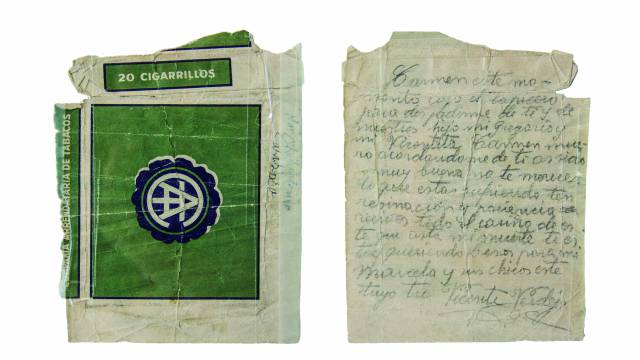 20 CIGARRILLOS
ARRENDATARIA DE TABACOS
Carmen este mo-
mento cojo el lapicero
para despedirme de ti y de
nuestros hijo mi gregorio y
mi Vicentita Carmen mue-
ro acordandome de ti as sido
muy buena no te mereces
lo que estas sufriendo ten
resinacion y paciencia
todo el cariño de es
te que asta mi muerte te es
ta queriendo besos para mi
Marcela y mis chicos este
tuyo Vicente Verdejo